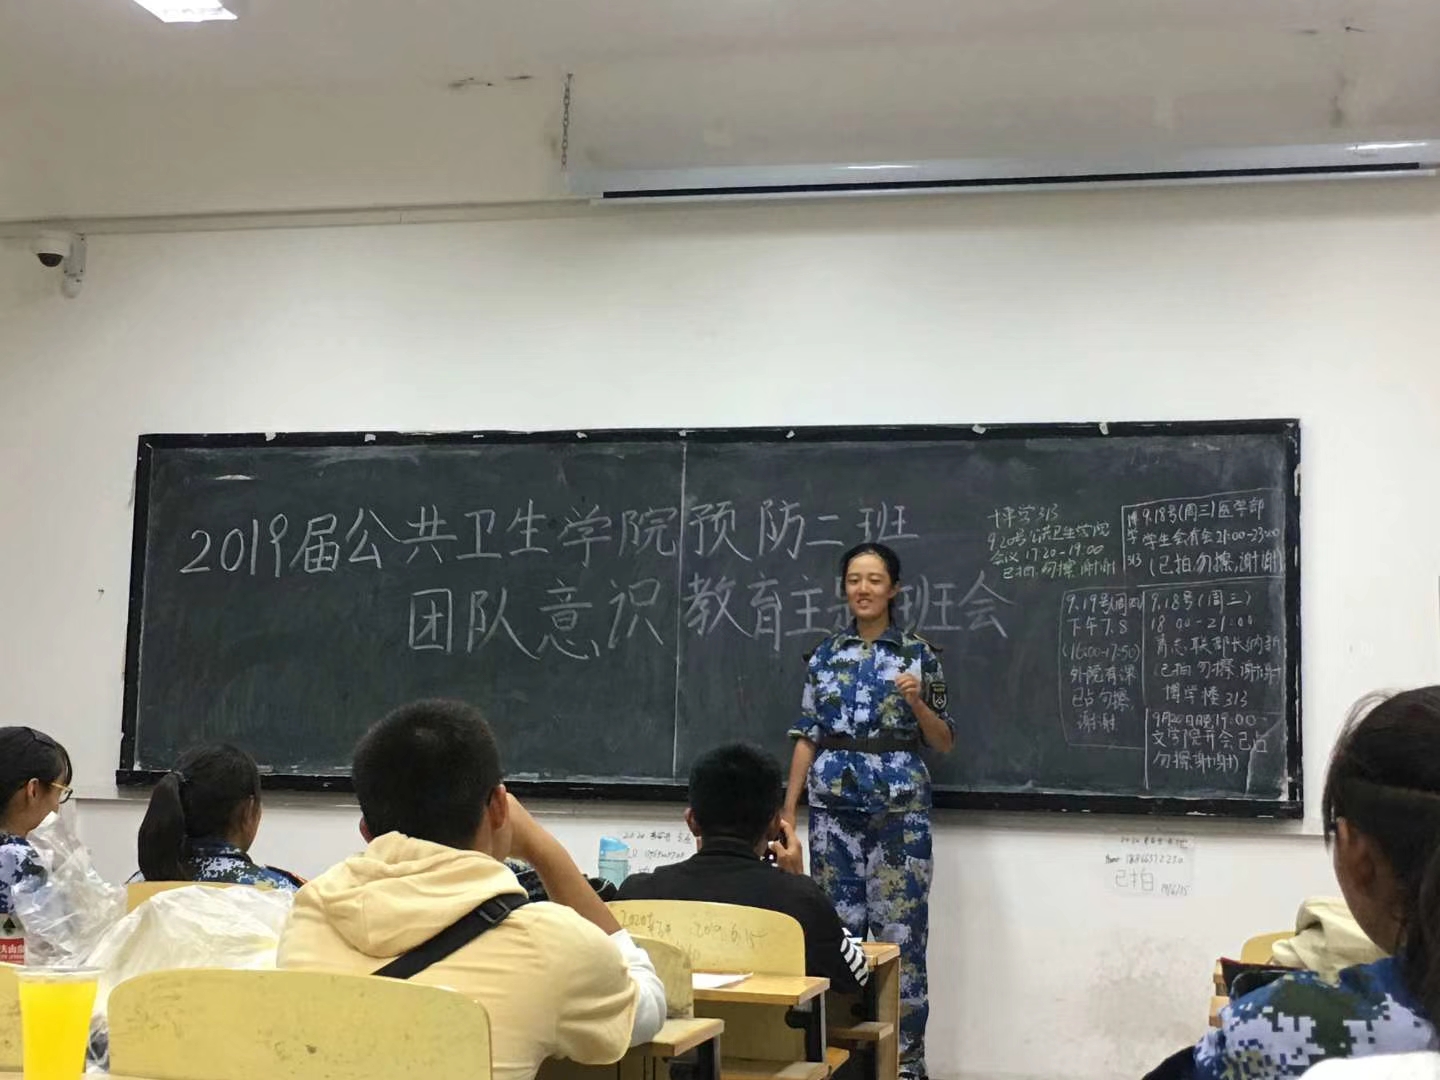 2019届公共卫生学院预防二班
团队意识教育主题班会
博学313
9.20号公共卫生学院
会议17:20-19:00
已拍,勿擦,谢谢
博学313
9.18号(周三)医学部
学生会有会21:00-23:00
(已拍,勿擦,谢谢)
9.19号(周四)
下午7.8
(16:00-17:50)
外院有课
已占勿擦
谢谢
9.18号(周三)
18:00-21:00
青志联部长纳新
(已拍勿擦 谢谢)
博学楼313
9月20日晚19:00-
文学院开会已占
勿擦谢谢)
已拍
19/6/15
2019.6.15